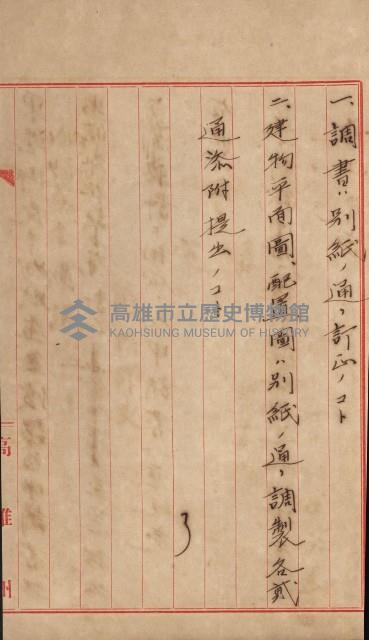 一、調書ハ別紙ノ通リ訂正ノコト
二、建物平面圖、配置圖ハ別紙ノ通リ調製各貳
通添附提出ノコト
高雄市立歷史博物館
KAOHSIUNG MUSEUM OF HISTORY
高雄州